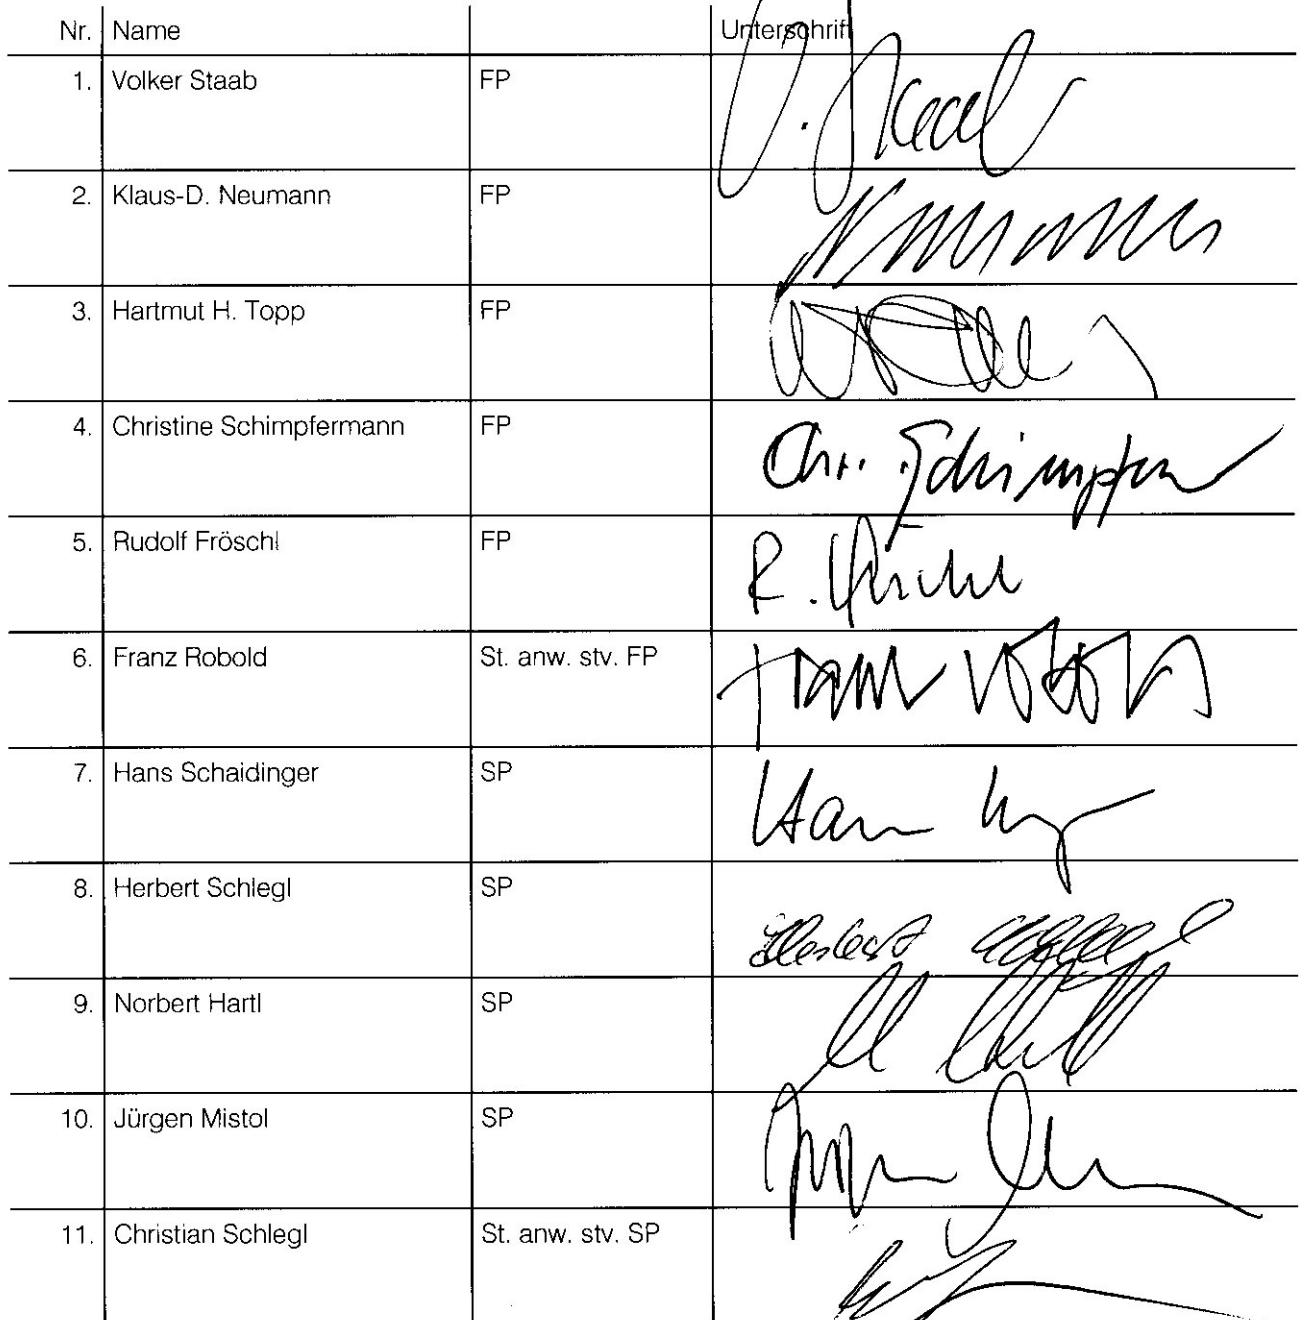 Nr. Name Unterschrift
1. Volker Staab FP
2. Klaus-D. Neumann FP
3. Hartmut H. Topp FP
4. Christine Schimpfermann FP Chr. Schimpfer
5. Rudolf Fröschl FP R. Fröschl
6. Franz Robold St. anw. stv. FP Franz Robold
7. Hans Schaidinger SP Hans
8. Herbert Schlegl SP Herbert Schlegl
9. Norbert Hartl SP
10. Jürgen Mistol SP
11. Christian Schlegl St. anw. stv. SP